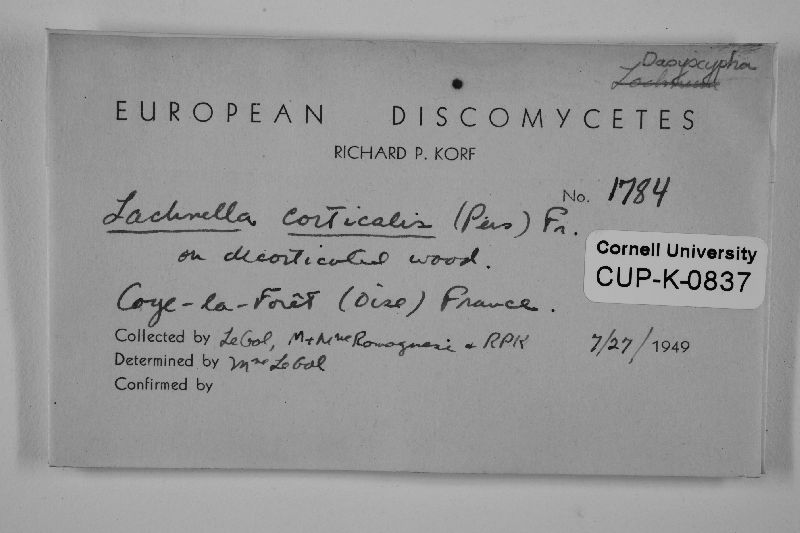 Dasyscypha
EUROPEAN DISCOMYCETES
RICHARD P. KORF
No. 1784
Lachnella corticalis (Pers) Fr.
on decorticated wood.
Cornell University
CUP-K-0837
Coye-la-Forêt (Oise) France.
Collected by LeGal, M + Mme Romagnesi + RPK 7/27/1949
Determined by Mme LeGal
Confirmed by